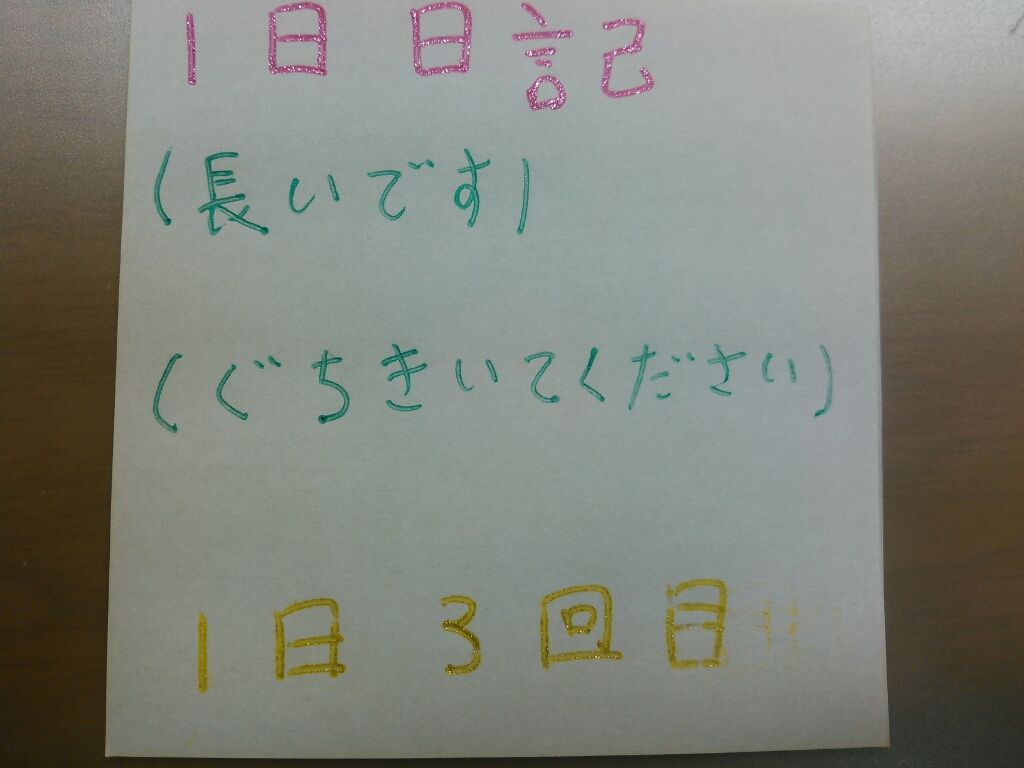 1日日記
(長いです)
(ぐちきいてください)
1日3回目